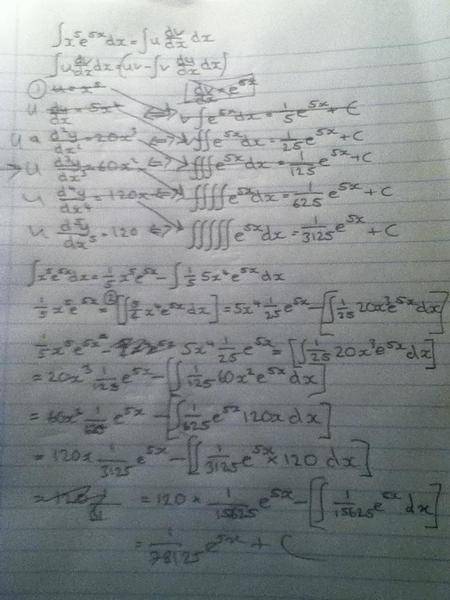 ∫x⁵e⁵ˣdx = ∫u dv/dx dx
∫u dv/dx dx = (uv - ∫v du/dx dx)
① u = x⁵ [dv/dx = e⁵ˣ]
u du/dx = 5x⁴ ⇔ v ∫e⁵ˣdx = 1/5 e⁵ˣ + C
u d²y/dx² = 20x³ ⇔ ∫∫e⁵ˣdx = 1/25 e⁵ˣ + C
u d³y/dx³ = 60x² ⇔ ∫∫∫e⁵ˣdx = 1/125 e⁵ˣ + C
u d⁴y/dx⁴ = 120x ⇔ ∫∫∫∫e⁵ˣdx = 1/625 e⁵ˣ + C
u d⁵y/dx⁵ = 120 ⇔ ∫∫∫∫∫e⁵ˣdx = 1/3125 e⁵ˣ + C
∫x⁵e⁵ˣdx = 1/5 x⁵e⁵ˣ - ∫1/5 5x⁴e⁵ˣdx
1/5 x⁵e⁵ˣ = ② x⁴e⁵ˣdx] = 5x⁴ 1/25 e⁵ˣ - [∫1/25 20x³e⁵ˣdx]
1/5 x⁵e⁵ˣ - 5x⁴ 1/25 e⁵ˣ = [∫1/25 20x³e⁵ˣdx]
= 20x³ 1/125 e⁵ˣ - [∫1/125 60x²e⁵ˣdx]
= 60x² e⁵ˣ - [∫1/625 e⁵ˣ 120x dx]
= 120x 1/3125 e⁵ˣ - [∫1/3125 e⁵ˣ × 120 dx]
= 120 × 1/15625 e⁵ˣ - [∫1/15625 e⁵ˣ dx]
= 1/78125 e⁵ˣ + C